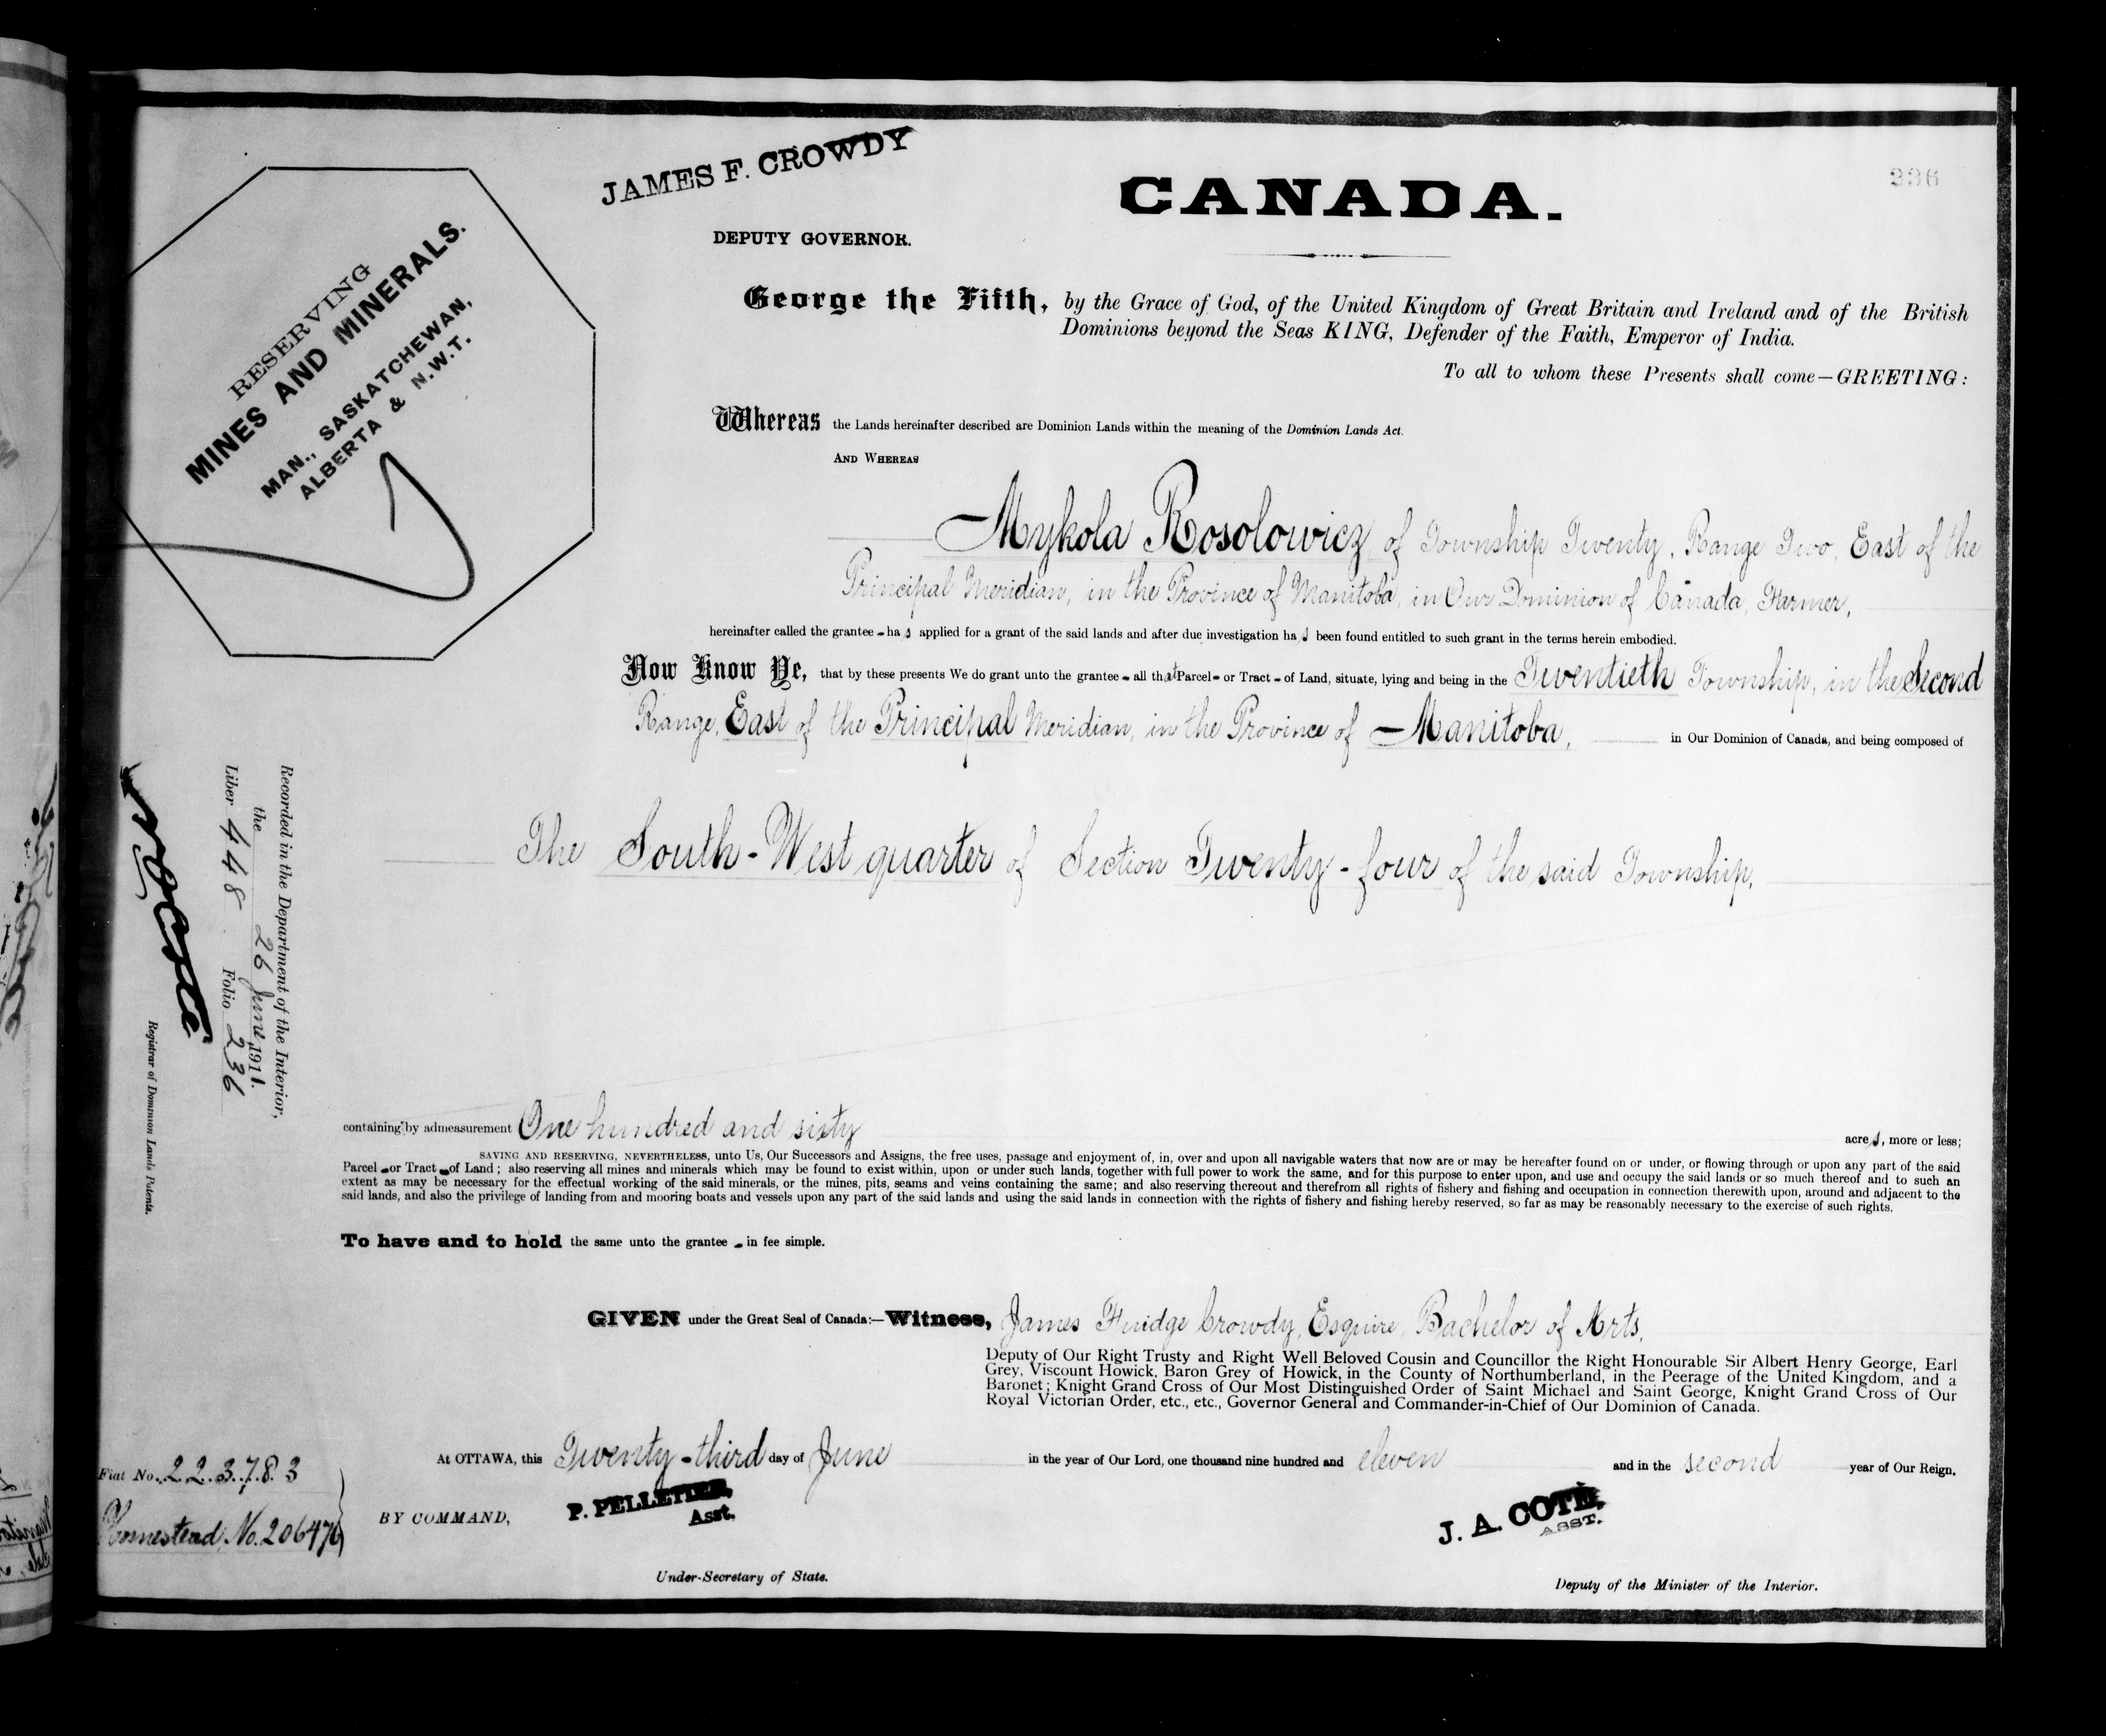 JAMES F. CROWDY
DEPUTY GOVERNOR.
CANADA.
236
RESERVING
MINES AND MINERALS.
MAN., SASKATCHEWAN,
ALBERTA & N.W.T.
George the Fifth, by the Grace of God, of the United Kingdom of Great Britain and Ireland and of the British
Dominions beyond the Seas KING, Defender of the Faith, Emperor of India.
To all to whom these Presents shall come—GREETING:
Whereas the Lands hereinafter described are Dominion Lands within the meaning of the Dominion Lands Act.
AND WHEREAS
Mykola Rosolowicz, of Township Twenty, Range Two, East of the
Principal Meridian, in the Province of Manitoba, in Our Dominion of Canada, Farmer,
hereinafter called the grantee - has applied for a grant of the said lands and after due investigation has been found entitled to such grant in the terms herein embodied.
Now Know Ye, that by these presents We do grant unto the grantee - all that Parcel - or Tract - of Land, situate, lying and being in the Twentieth Township, in the Second
Range, East of the Principal Meridian, in the Province of Manitoba, in Our Dominion of Canada, and being composed of
The South-West quarter of Section Twenty-four of the said Township,
Recorded in the Department of the Interior,
the 26 June 1911.
Liber 448 Folio 236
Registrar of Dominion Lands Patents.
containing by admeasurement One hundred and sixty acres, more or less;
SAVING AND RESERVING, NEVERTHELESS, unto Us, Our Successors and Assigns, the free uses, passage and enjoyment of, in, over and upon all navigable waters that now are or may be hereafter found on or under, or flowing through or upon any part of the said
Parcel - or Tract - of Land; also reserving all mines and minerals which may be found to exist within, upon or under such lands, together with full power to work the same, and for this purpose to enter upon, and use and occupy the said lands or so much thereof and to such an
extent as may be necessary for the effectual working of the said minerals, or the mines, pits, seams and veins containing the same; and also reserving thereout and therefrom all rights of fishery and fishing and occupation in connection therewith upon, around and adjacent to the
said lands, and also the privilege of landing from and mooring boats and vessels upon any part of the said lands and using the said lands in connection with the rights of fishery and fishing hereby reserved, so far as may be reasonably necessary to the exercise of such rights.
To have and to hold the same unto the grantee - in fee simple.
GIVEN under the Great Seal of Canada:—Witness, James Fuidge Crowdy, Esquire, Bachelor of Arts,
Deputy of Our Right Trusty and Right Well Beloved Cousin and Councillor the Right Honourable Sir Albert Henry George, Earl
Grey, Viscount Howick, Baron Grey of Howick, in the County of Northumberland, in the Peerage of the United Kingdom, and a
Baronet; Knight Grand Cross of Our Most Distinguished Order of Saint Michael and Saint George, Knight Grand Cross of Our
Royal Victorian Order, etc., etc., Governor General and Commander-in-Chief of Our Dominion of Canada.
At OTTAWA, this Twenty-third day of June in the year of Our Lord, one thousand nine hundred and eleven and in the second year of Our Reign.
Fiat No. 223783
Homestead, No. 206476
BY COMMAND,
P. PELLETIER,
Asst.
Under-Secretary of State.
J. A. COTÉ,
ASST.
Deputy of the Minister of the Interior.